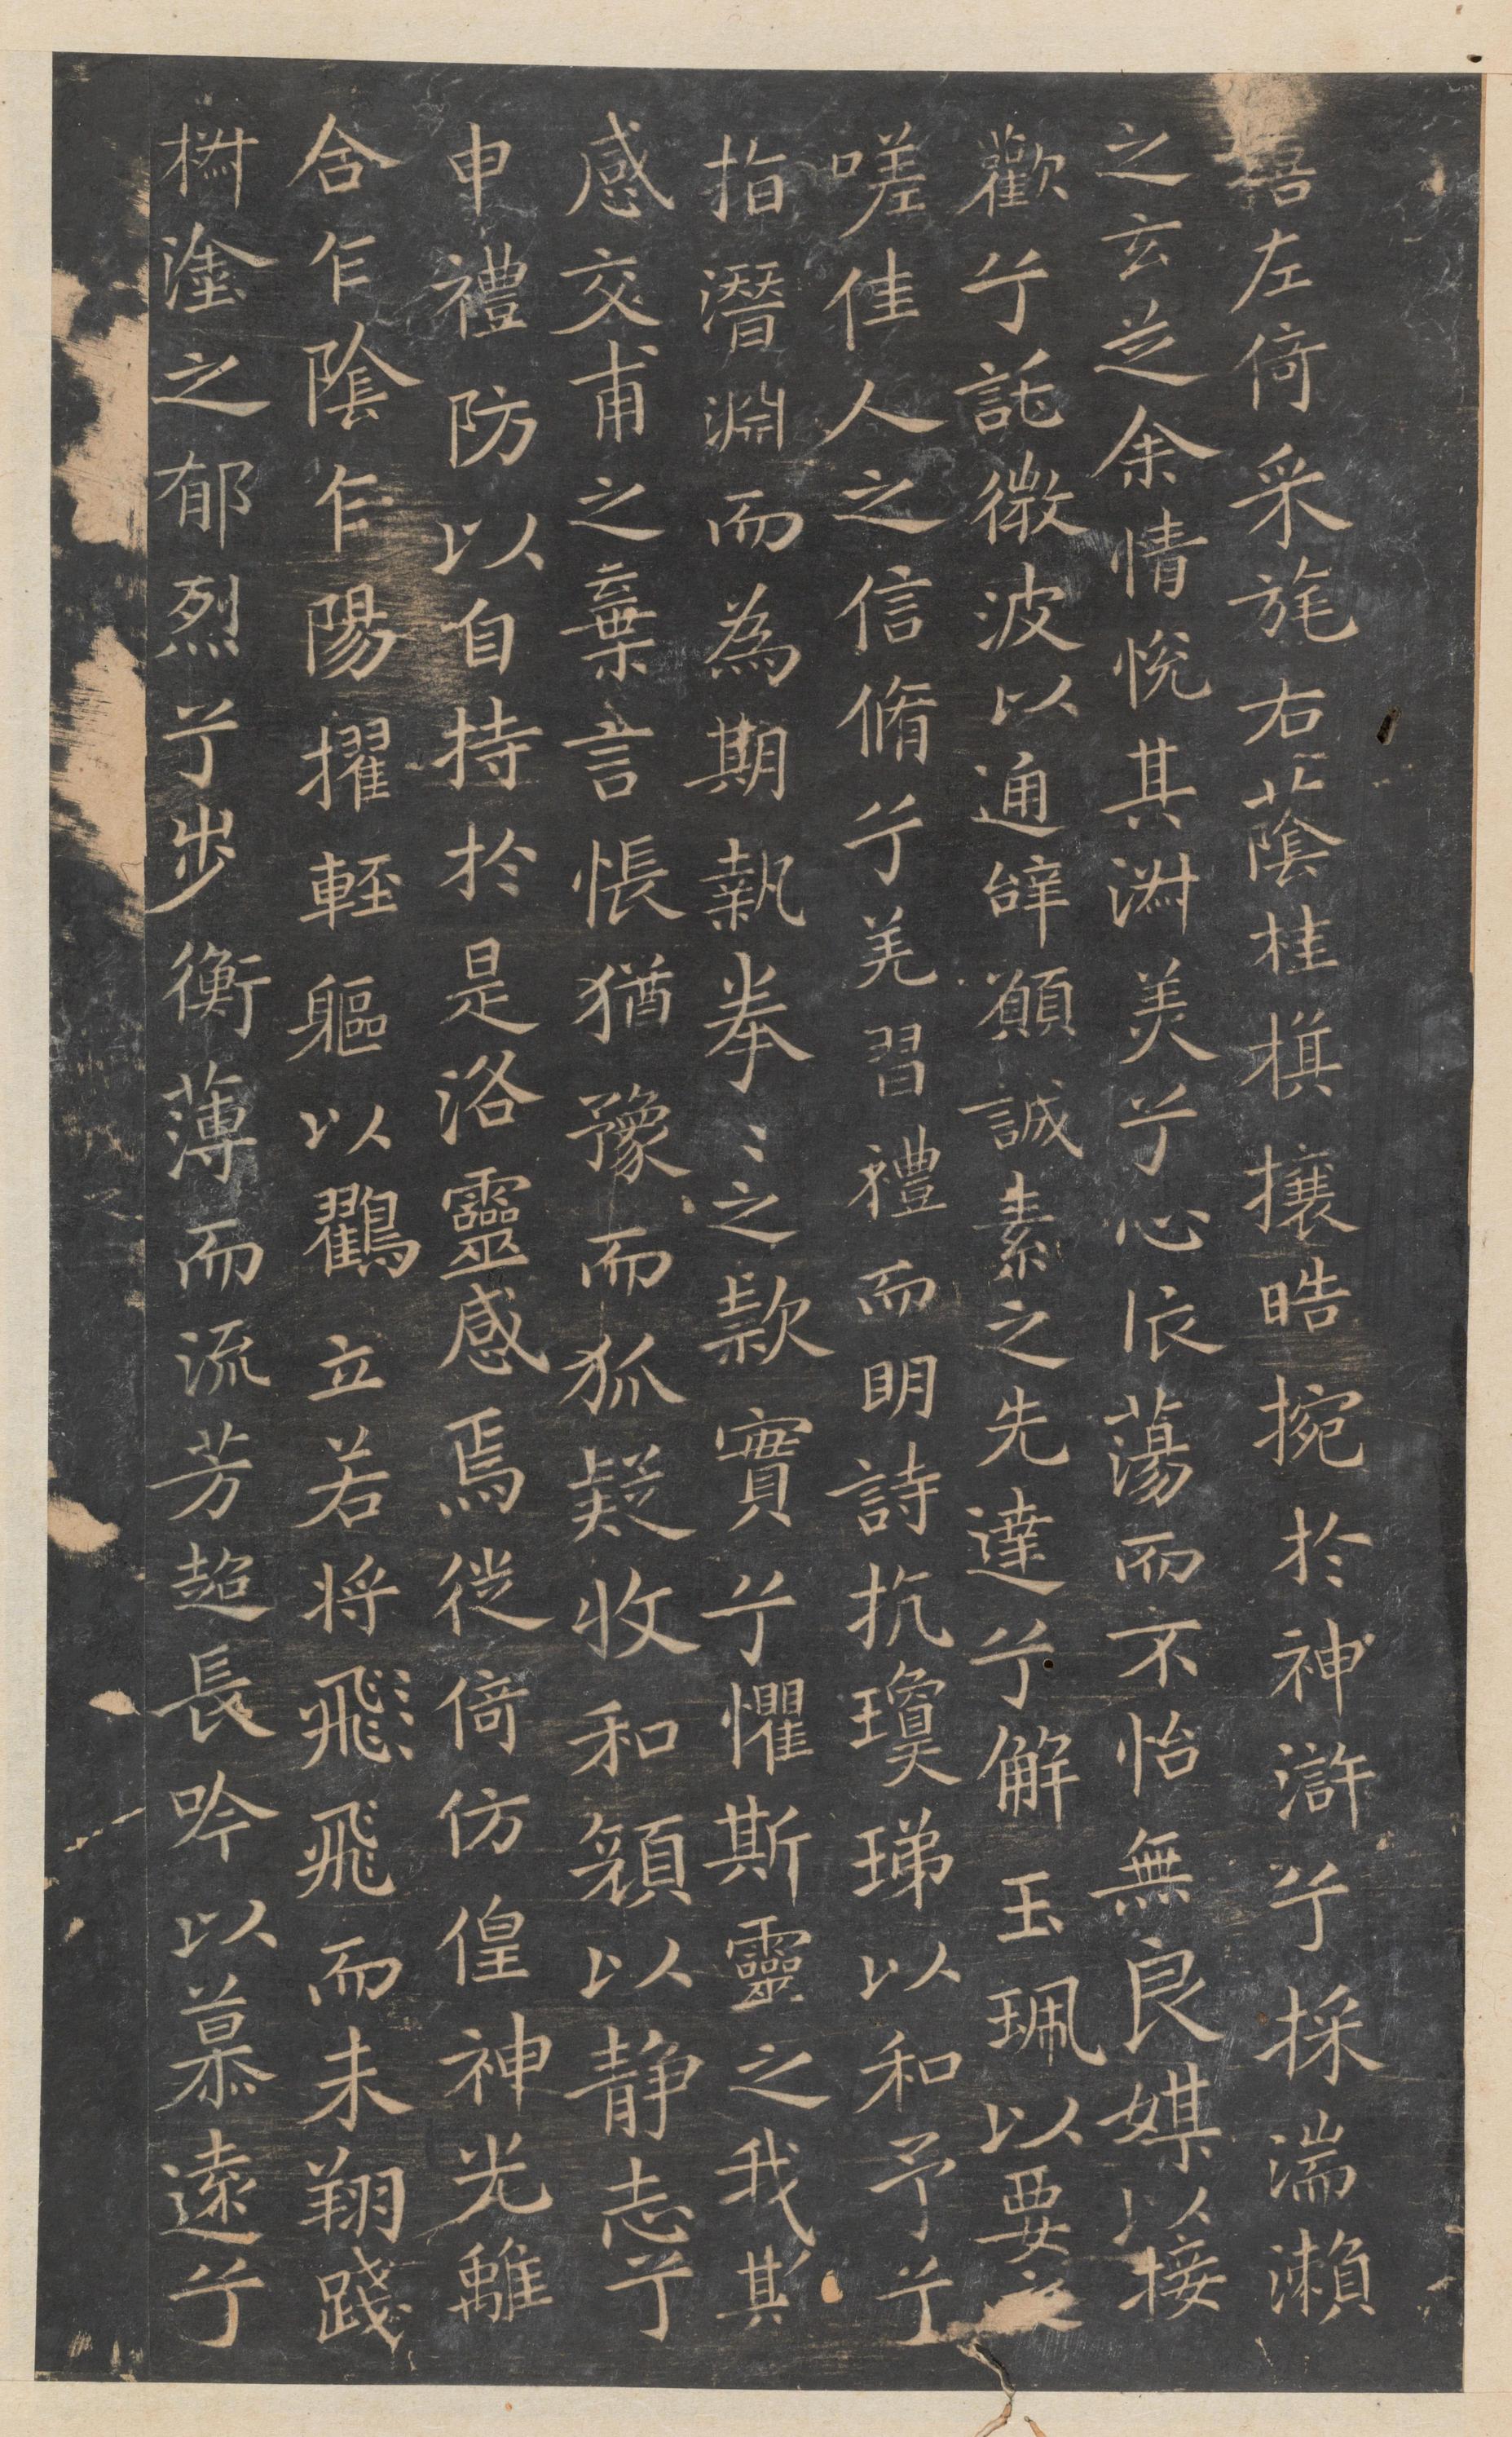 左倚采旄右蔭桂旗攘晧捥於神滸兮採湍瀨
之玄芝余情悅其淑美兮心依蕩而不怡無良媒以接
歡兮託微波以通辭願誠素之先達兮解玉珮以要之
嗟佳人之信脩兮羌習禮而明詩抗瓊珶以和予兮
指潛淵而為期執拳〻之款實兮懼斯靈之我欺
感交甫之棄言悵猶豫而狐疑收和顏以靜志兮
申禮防以自持於是洛靈感焉徙倚仿偟神光離
合乍陰乍陽擢輕軀以鸖立若将飛飛而未翔踐
椒塗之郁烈兮步衡薄而流芳超長吟以慕遠兮